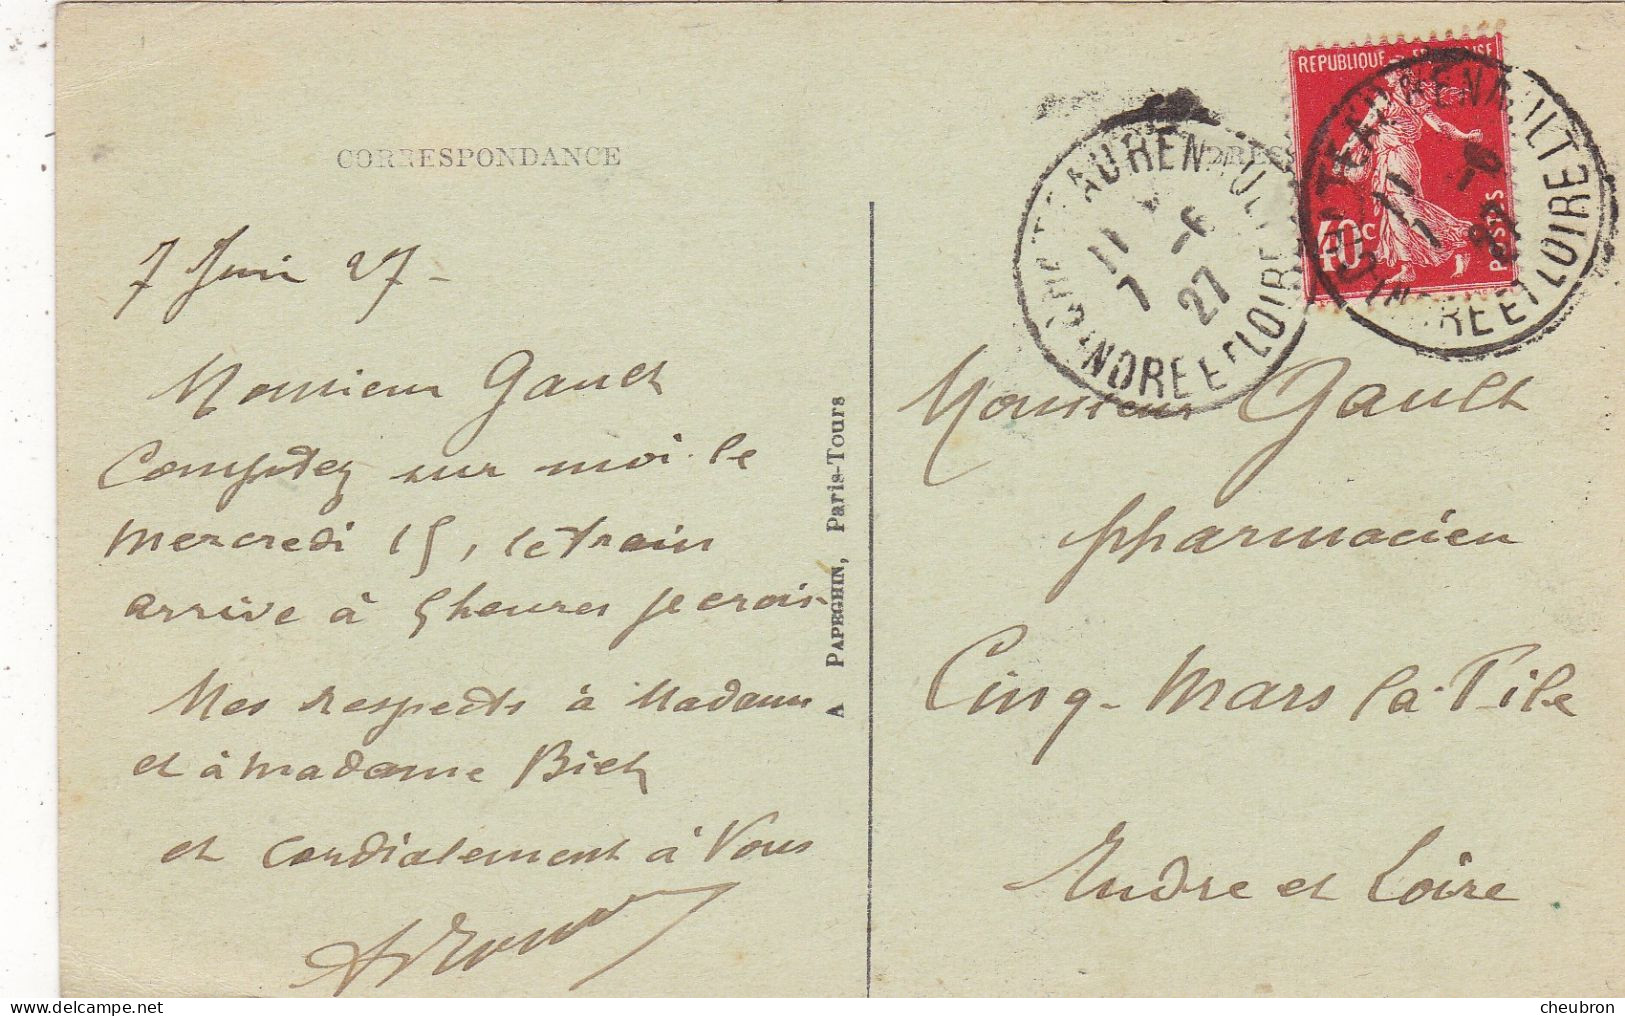 CORRESPONDANCE
7 Juin 27-
Monsieur Gault
Comptez sur moi le
mercredi 15, le train
arrive à 5 heures je crois-
Mes respects à Madame
et à madame Biet
et cordialement à Vous
PAPEGHIN, Paris-Tours
REPUBLIQUE FRANÇAISE
40c
POSTES
CHATEAURENAULT
11
7 -6
27
INDRE ET LOIRE
CHATEAURENAULT
11
7 -6
27
INDRE ET LOIRE
Monsieur Gault
pharmacien
Cinq-Mars la-Pile
Indre et Loire
delcampe.net
cheubron